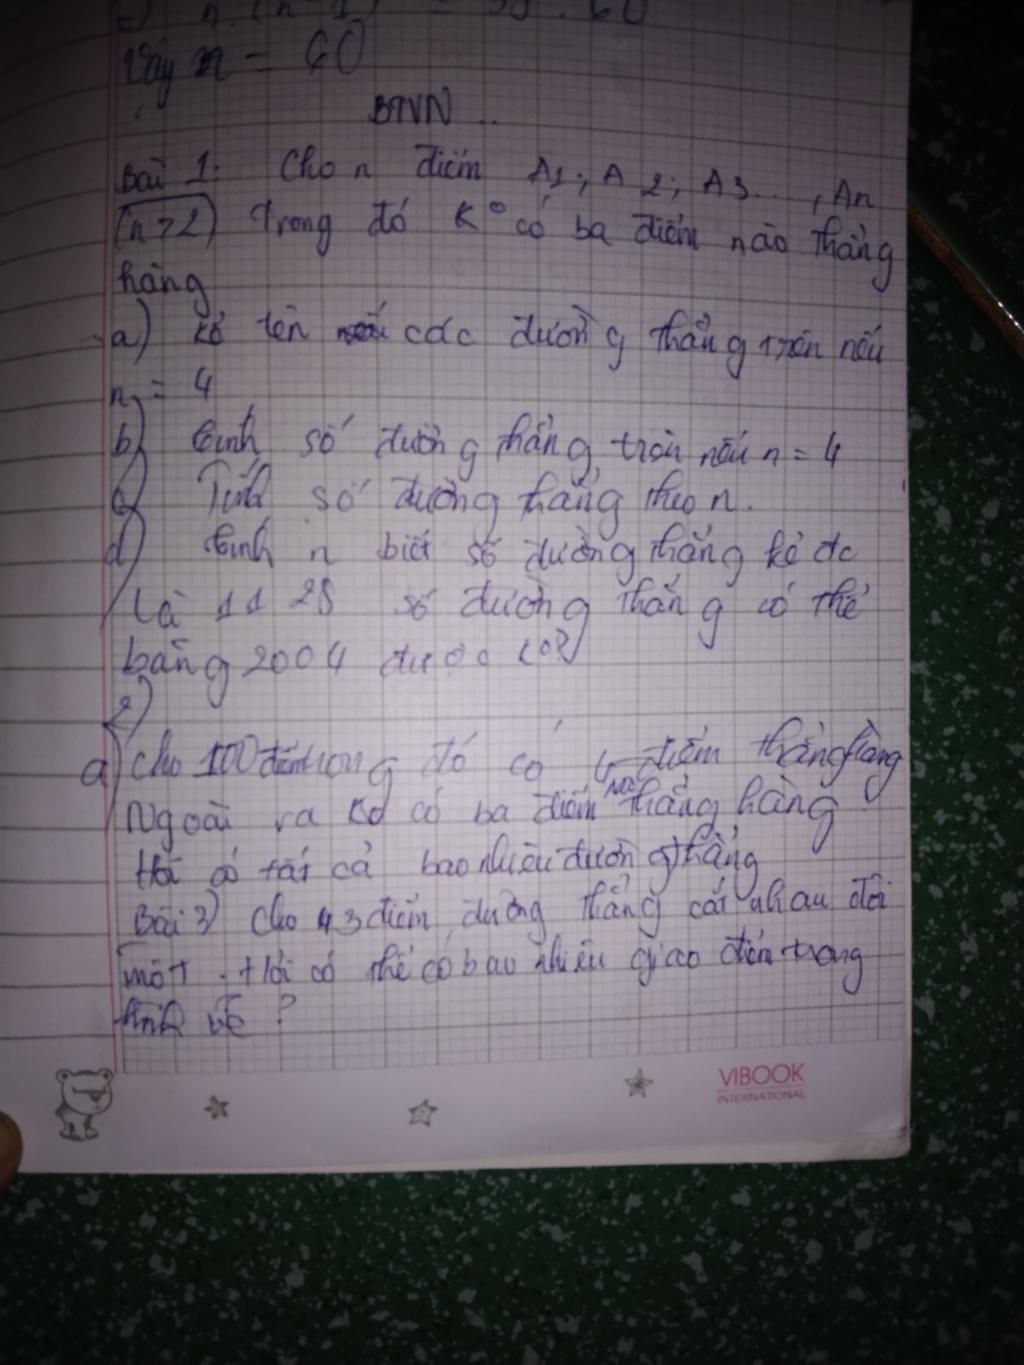 =) n. (n-1) = 59.60
Vậy n = 60
BTVN ..
Bài 1: Cho n điểm A1; A2; A3..., An
(n>2) trong đó K° có ba điểm nào thẳng
hàng
a) kể tên các đường thẳng trên nếu
n = 4
b) tính số đường thẳng trên nếu n = 4
c) Tính số đường thẳng theo n.
d) tính n biết số đường thẳng kẻ đc
là 1128 số đường thẳng có thể
bằng 2004 được ko?
2)
a) Cho 100 điểm trong đó có 4 điểm thẳng hàng
Ngoài ra ko có ba điểm nào thẳng hàng
Hỏi có tất cả bao nhiêu đường thẳng
Bài 3) Cho 43 điểm, đường thẳng cắt nhau đôi
một. Hỏi có thể có bao nhiêu giao điểm trong
hình vẽ ?
VIBOOK
INTERNATIONAL